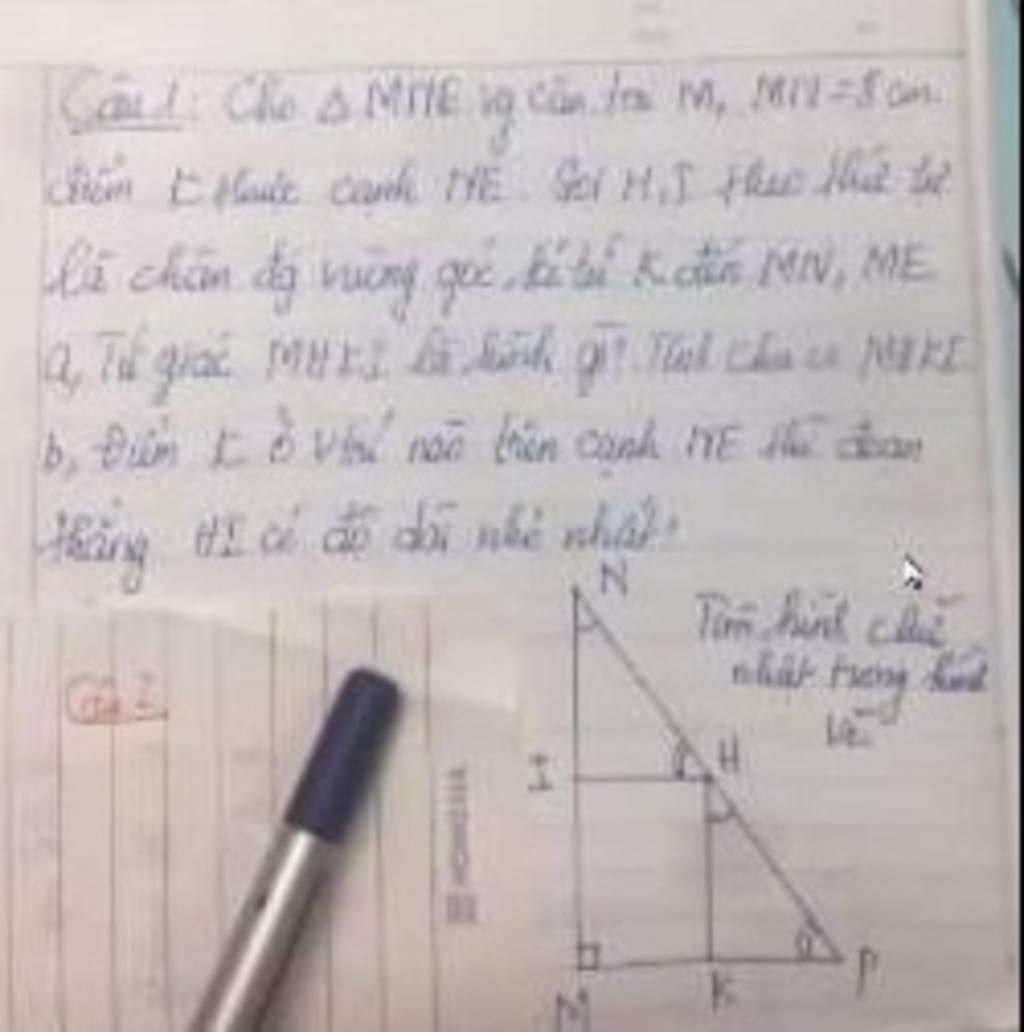 Câu 1: Cho Δ MNE vg cân tại M, MN = 8 cm.
điểm K thuộc cạnh NE. Gọi H, I theo thứ tự
là chân đg vuông góc kẻ từ K đến MN, ME
a, Tứ giác MHKI là hình gì? Tính chu vi MHKI
b, Điểm K ở vị trí nào trên cạnh NE thì đoạn
thẳng HI có độ dài nhỏ nhất?
N
Tìm hình chữ
nhật trong hình
vẽ
Câu 2
I
H
M
K
P